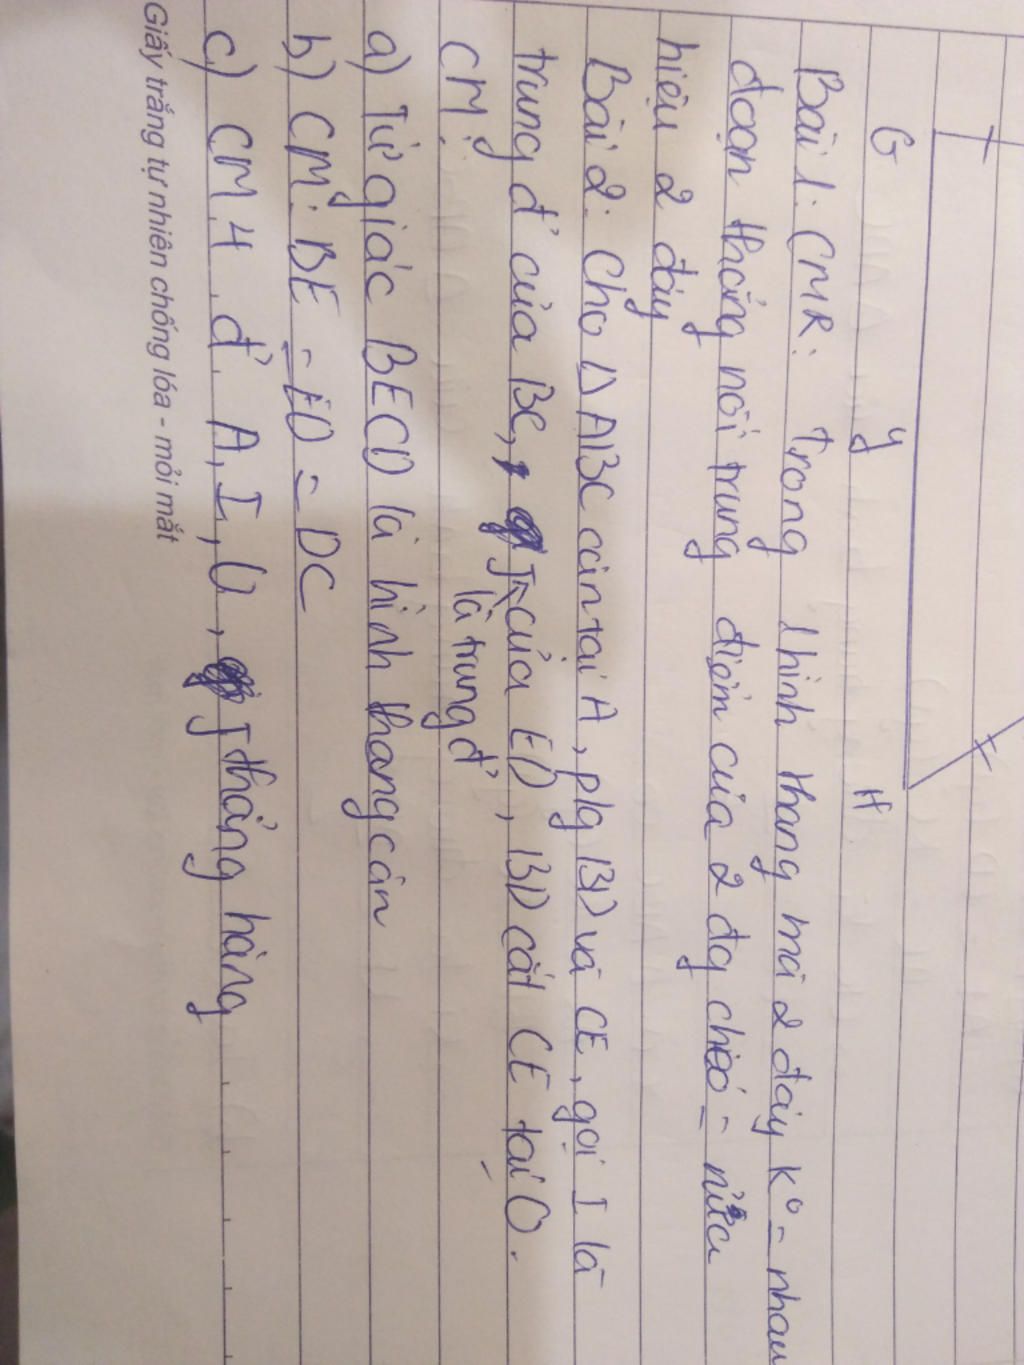 G y H
Bài 1: CMR: Trong 1 hình thang mà 2 đáy k° = nhau
đoạn thẳng nối trung điểm của 2 đg chéo = nửa
hiệu 2 đáy
Bài 2: Cho Δ ABC cân tại A, p/g BD và CE, gọi I là
trung đ' của BC, J là trung đ' của ED, BD cắt CE tại O.
CM:
a) Tứ giác BECD là hình thang cân
b) CM: BE = ED = DC
c) CM 4 đ' A, I, O, J thẳng hàng
Giấy trắng tự nhiên chống lóa - mỏi mắt